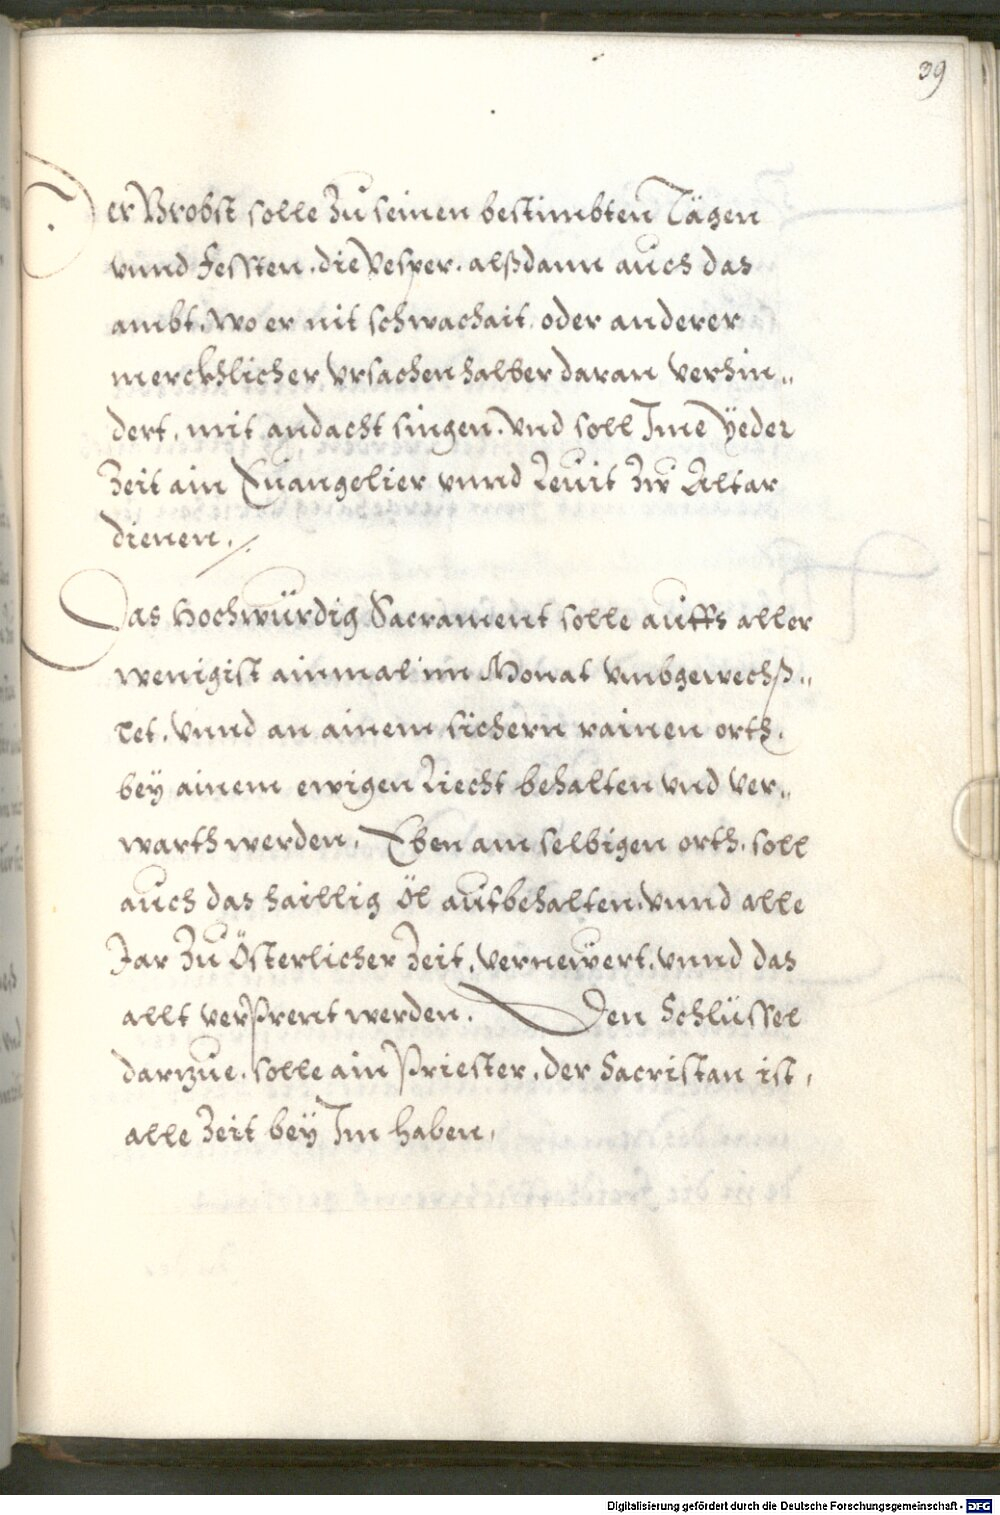 39
Der Brobst solle Zu seinen bestimbten Tägen
vnnd Fessten. die Vesper. alßdann auch das
ambt. Wo er nit schwachait oder anderer
merckhlicher vrsachen halber daran verhin„
dert. mit andacht singen. Vnd soll Ime Yeder
Zeit ain Euangelier vnnd Leuit Zur Altar
dienen./.
Das Hochwürdig Sacrament solle auffs aller
wenigist ainmal im Monat vmbgewechß„
let. vnnd an ainem sichern rainen orth.
bey ainem ewigen Liecht behalten vnd ver„
warth werden. Eben am selbigen orth. soll
auch das haillig Öl aufbehalten. vnnd alle
Jar Zu Österlicher Zeit. vernewert. vnnd das
allt verprent werden. Den Schlüssel
darzue. solle ain Priester. der Sacristan ist,
alle Zeit bey Im haben.
Digitalisierung gefördert durch die Deutsche Forschungsgemeinschaft - DFG